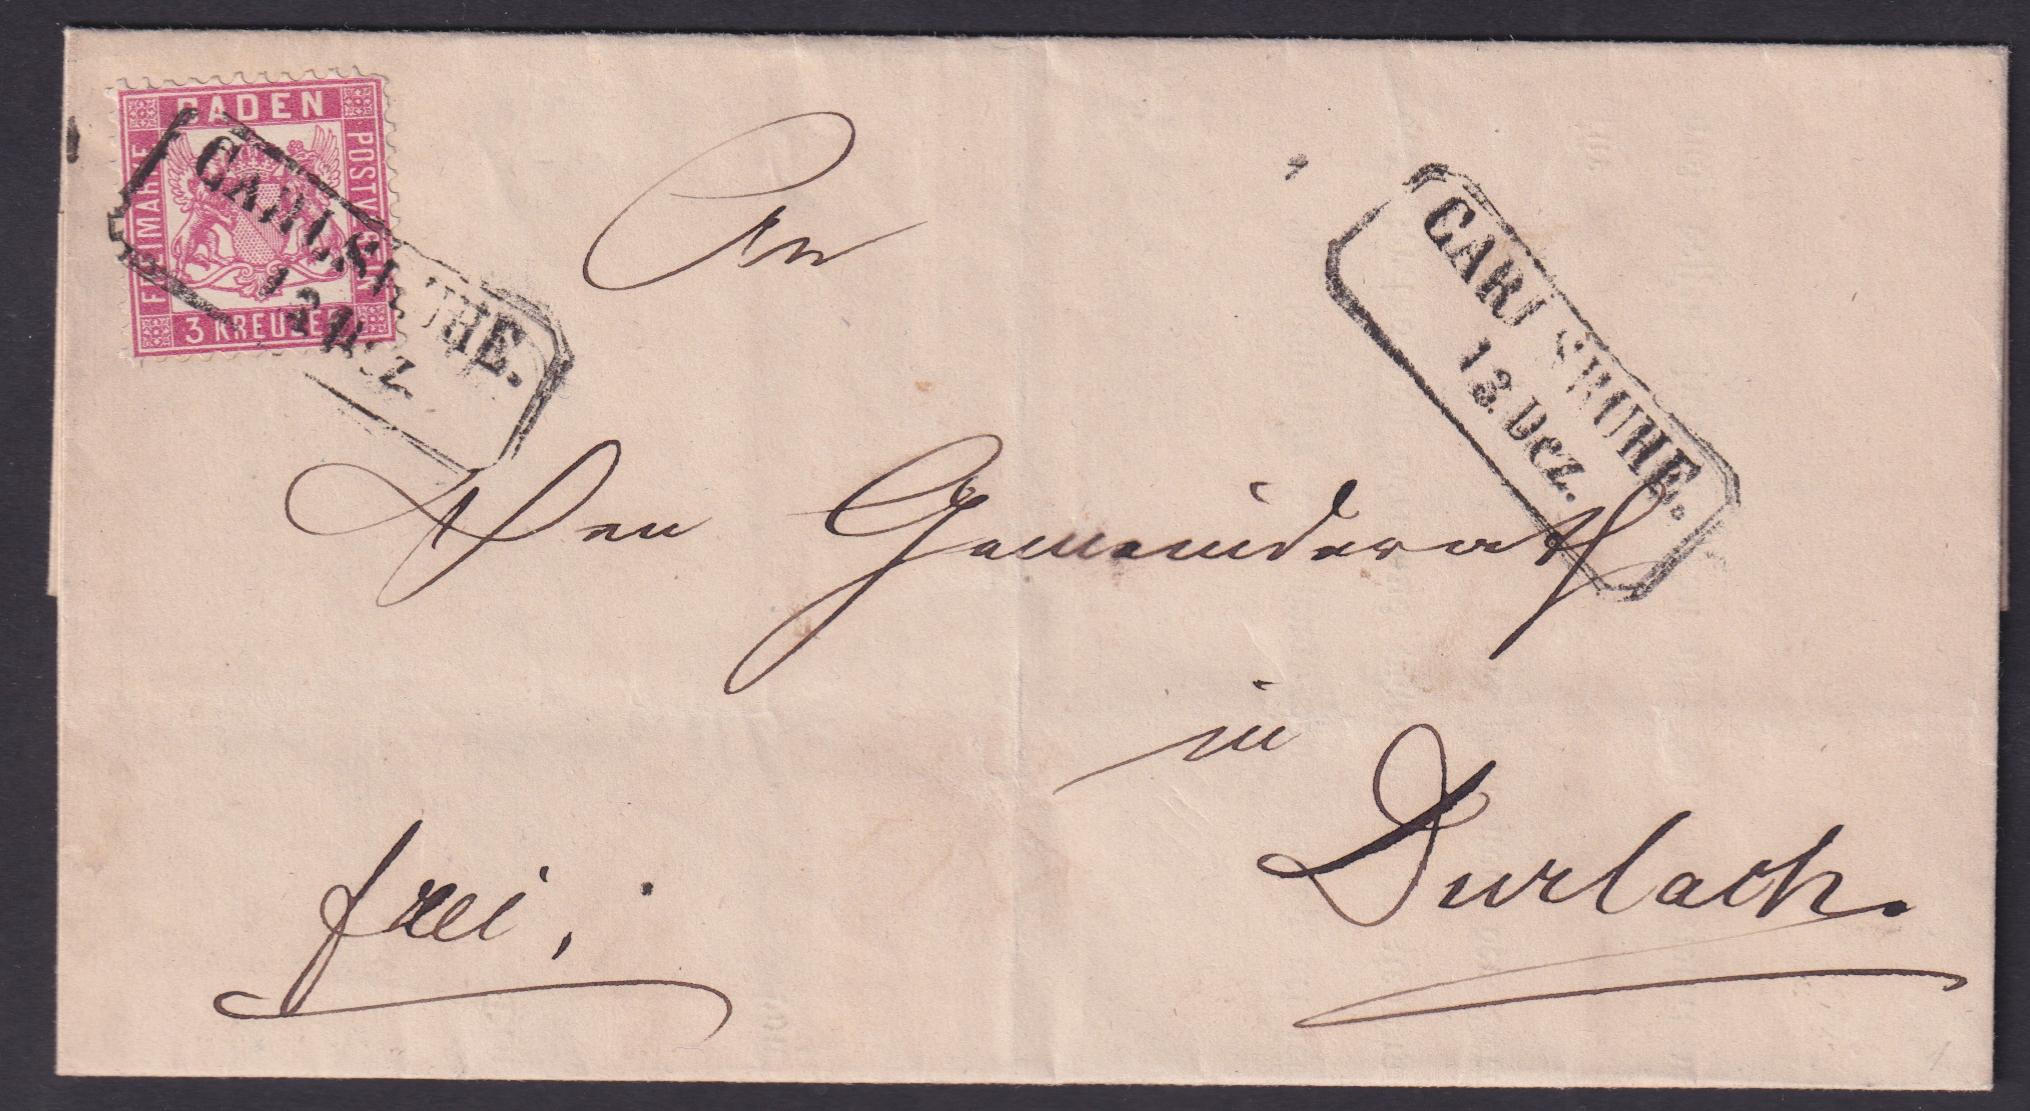 BADEN
FREIMARKE
POSTVEREIN
3 KREUZER
CARLSRUHE.
13 Dez.
CARLSRUHE.
13. Dez.
An
Den Gemeinderath
in
Durlach.
frei.